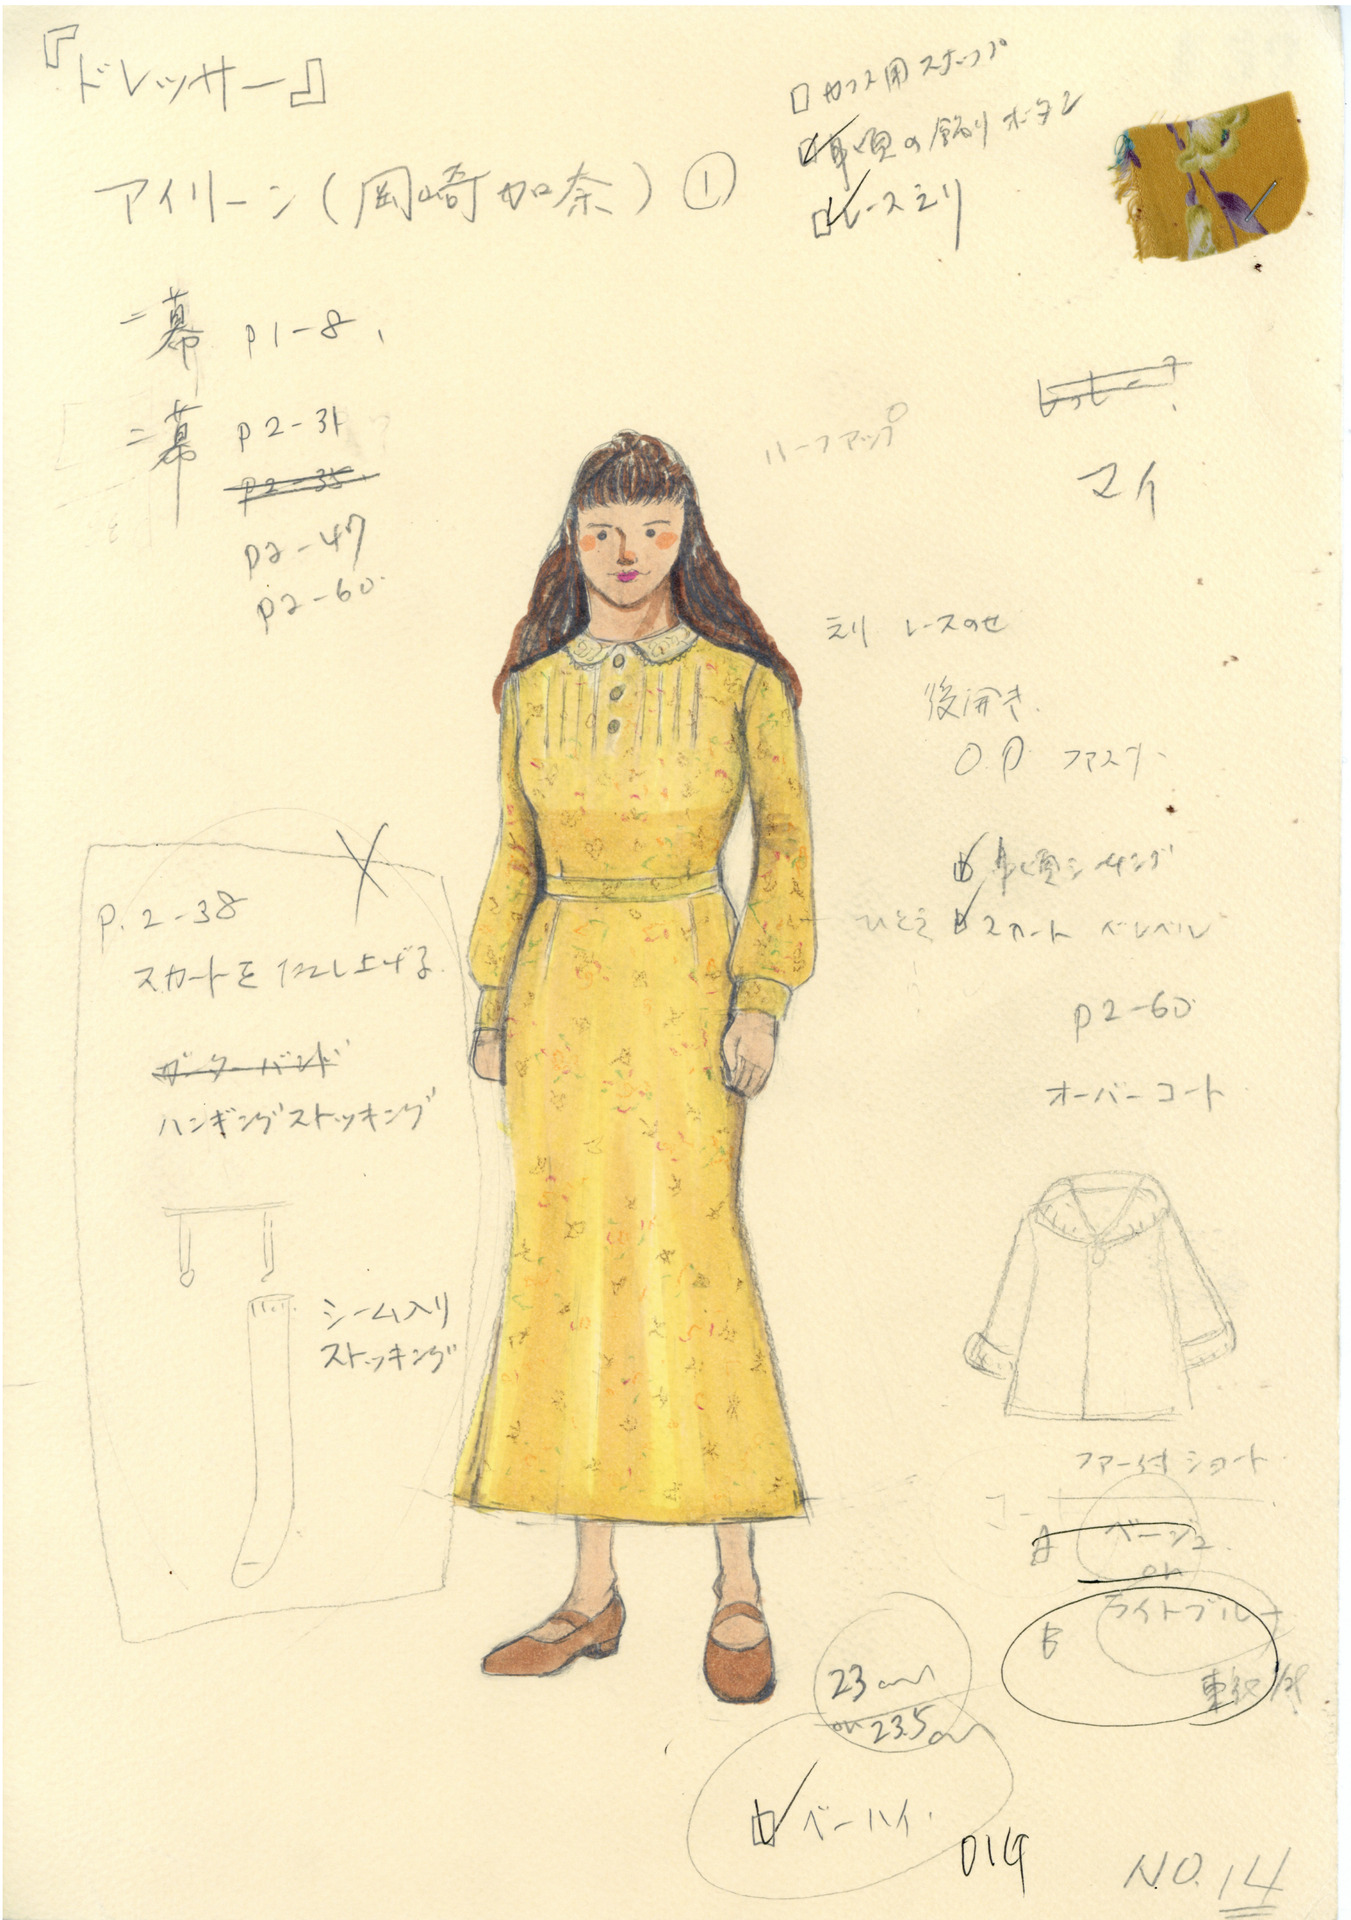 『ドレッサー』
アイリーン(岡崎加奈)①
カフス用スナップ
身頃の飾りボタン
レースえり
二幕 P1-8、
二幕 P2-31
P2-35
P2-47
P2-60
ハーフアップ
マイ
えり レースのせ
後開き
O.P ファスナー
身頃シャーリング
ひとえ スカート
P.2-38
スカートをたくし上げる
ガーターバンド
ハンギングストッキング
シーム入り
ストッキング
P2-60
オーバーコート
ファー付ショート
コート
A ベージュ
or
B ライトブルー
23cm
or 23.5cm
ベーハイ.
014
NO.14